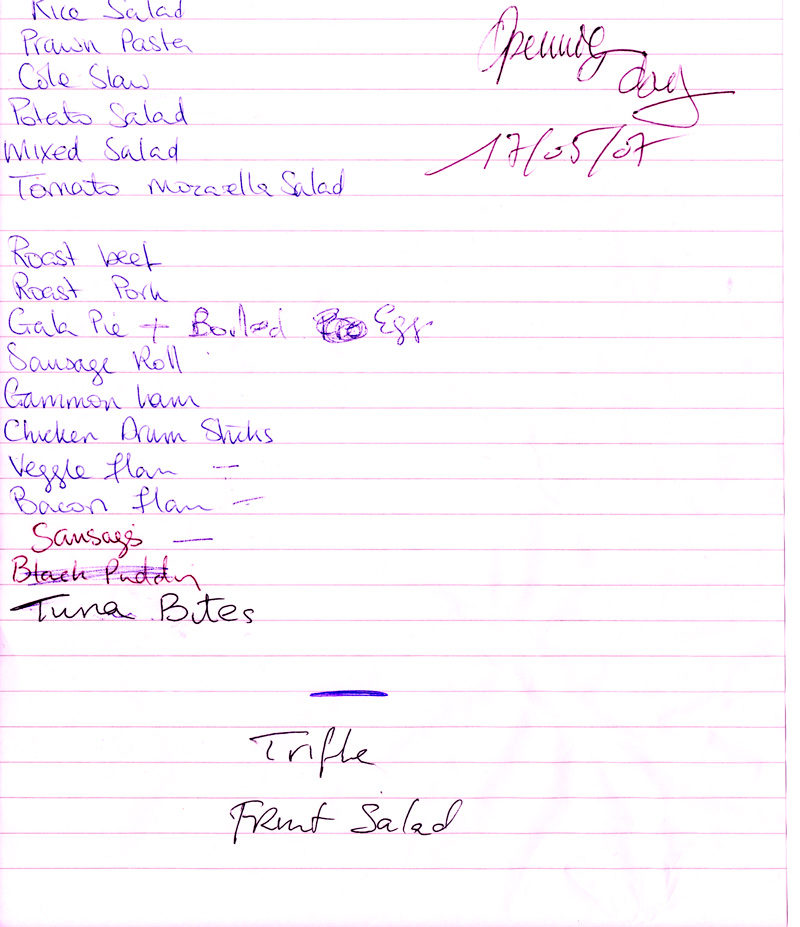 Rice Salad
Prawn Pasta
Cole Slaw
Potato Salad
Mixed Salad
Tomato Mozarella Salad
Openning
day
17/05/07
Roast beef
Roast Pork
Gala Pie + Boiled Egg
Sausage Roll
Gammon ham
Chicken Drum Sticks
Veggie flan —
Bacon flan —
Sausags —
Black Puddin
Tuna Bites
Trifle
Fruit Salad